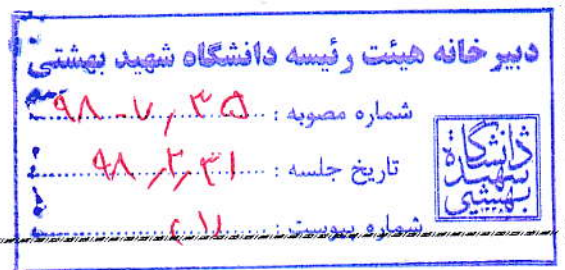 دبیرخانه هیئت رئیسه دانشگاه شهید بهشتی
شماره مصوبه :
تاریخ جلسه : ۹۸٫۲٫۳۱
شماره پیوست :
دانشگاه
شهید
بهشتی